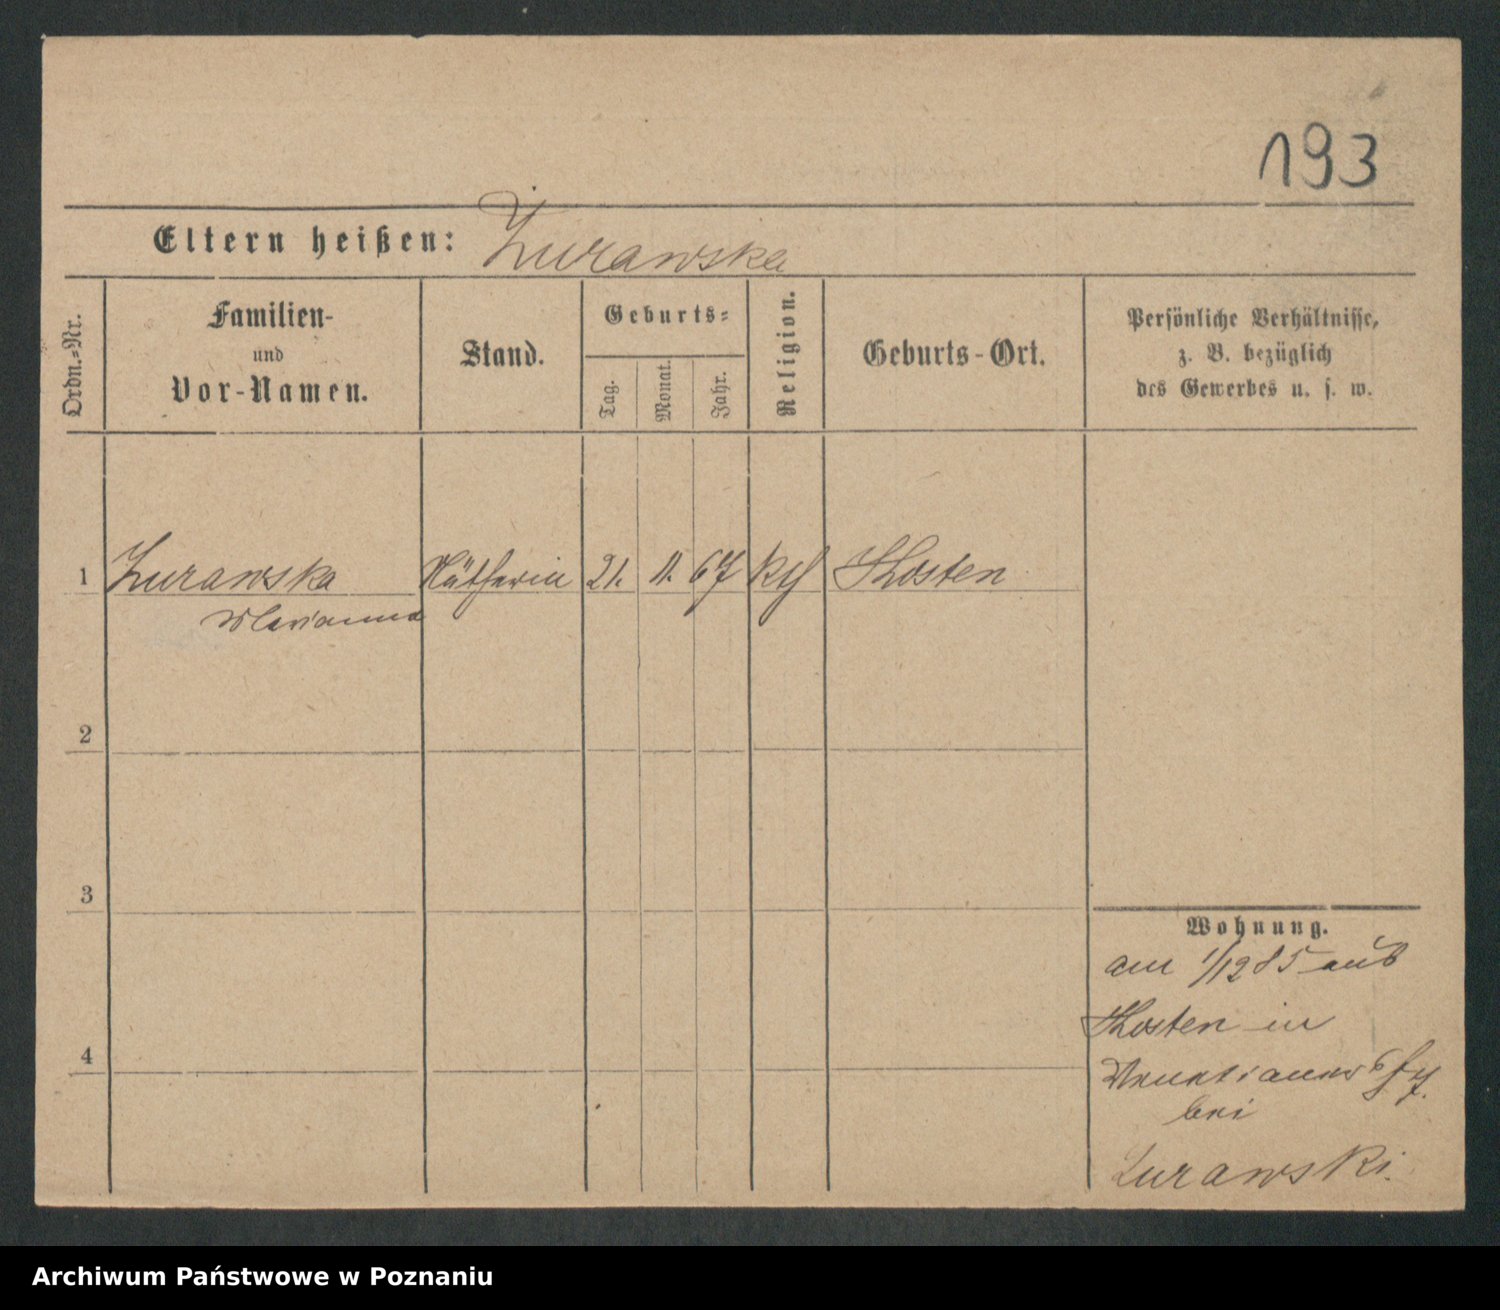 193
Eltern heißen: Żurawska
Ordn.-Nr.
Familien-
und
Vor-Namen.
Stand.
Geburts-
Tag.
Monat.
Jahr.
Religion.
Geburts-Ort.
Persönliche Verhältnisse,
z. B. bezüglich
des Gewerbes u. s. w.
1 Zurawska Nätherin 21. 11. 67 kth Kosten
Marianna
2
3
4
Wohnung.
am 1/12 85 aus
Kosten in
Venetianer
bei
Zurawski.
Archiwum Państwowe w Poznaniu